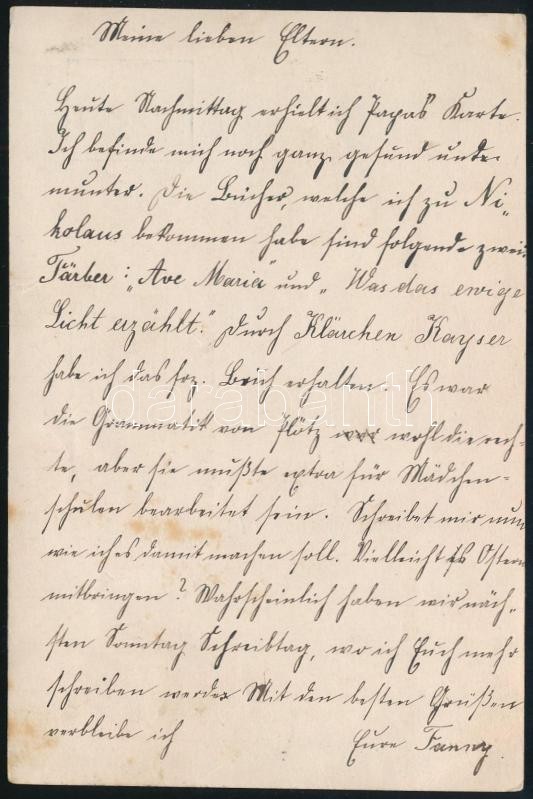 Meine lieben Eltern.
Heute Nachmittag erhielt ich Papas Karte.
Ich befinde mich noch ganz gesund und
munter. Die Bücher, welche ich zu Ni„
kolaus bekommen habe sind folgende zwei
Färber: „Ave Maria" und „Was das ewige
Licht erzählt." Durch Klärchen Kayser
habe ich das frz. Buch erhalten. Es war
die Grammatik von Plötz wohl die rech-
te, aber sie mußte extra für Mädchen=
schulen bearbeitet sein. Schreibet mir nun
wie ich es damit machen soll. Vielleicht Ostern
mitbringen? Wahrscheinlich haben wir näch„
sten Sonntag Schreibtag, wo ich Euch mehr
schreiben werde. Mit den besten Grüßen
verbleibe ich Eure Fanny.
darabanth